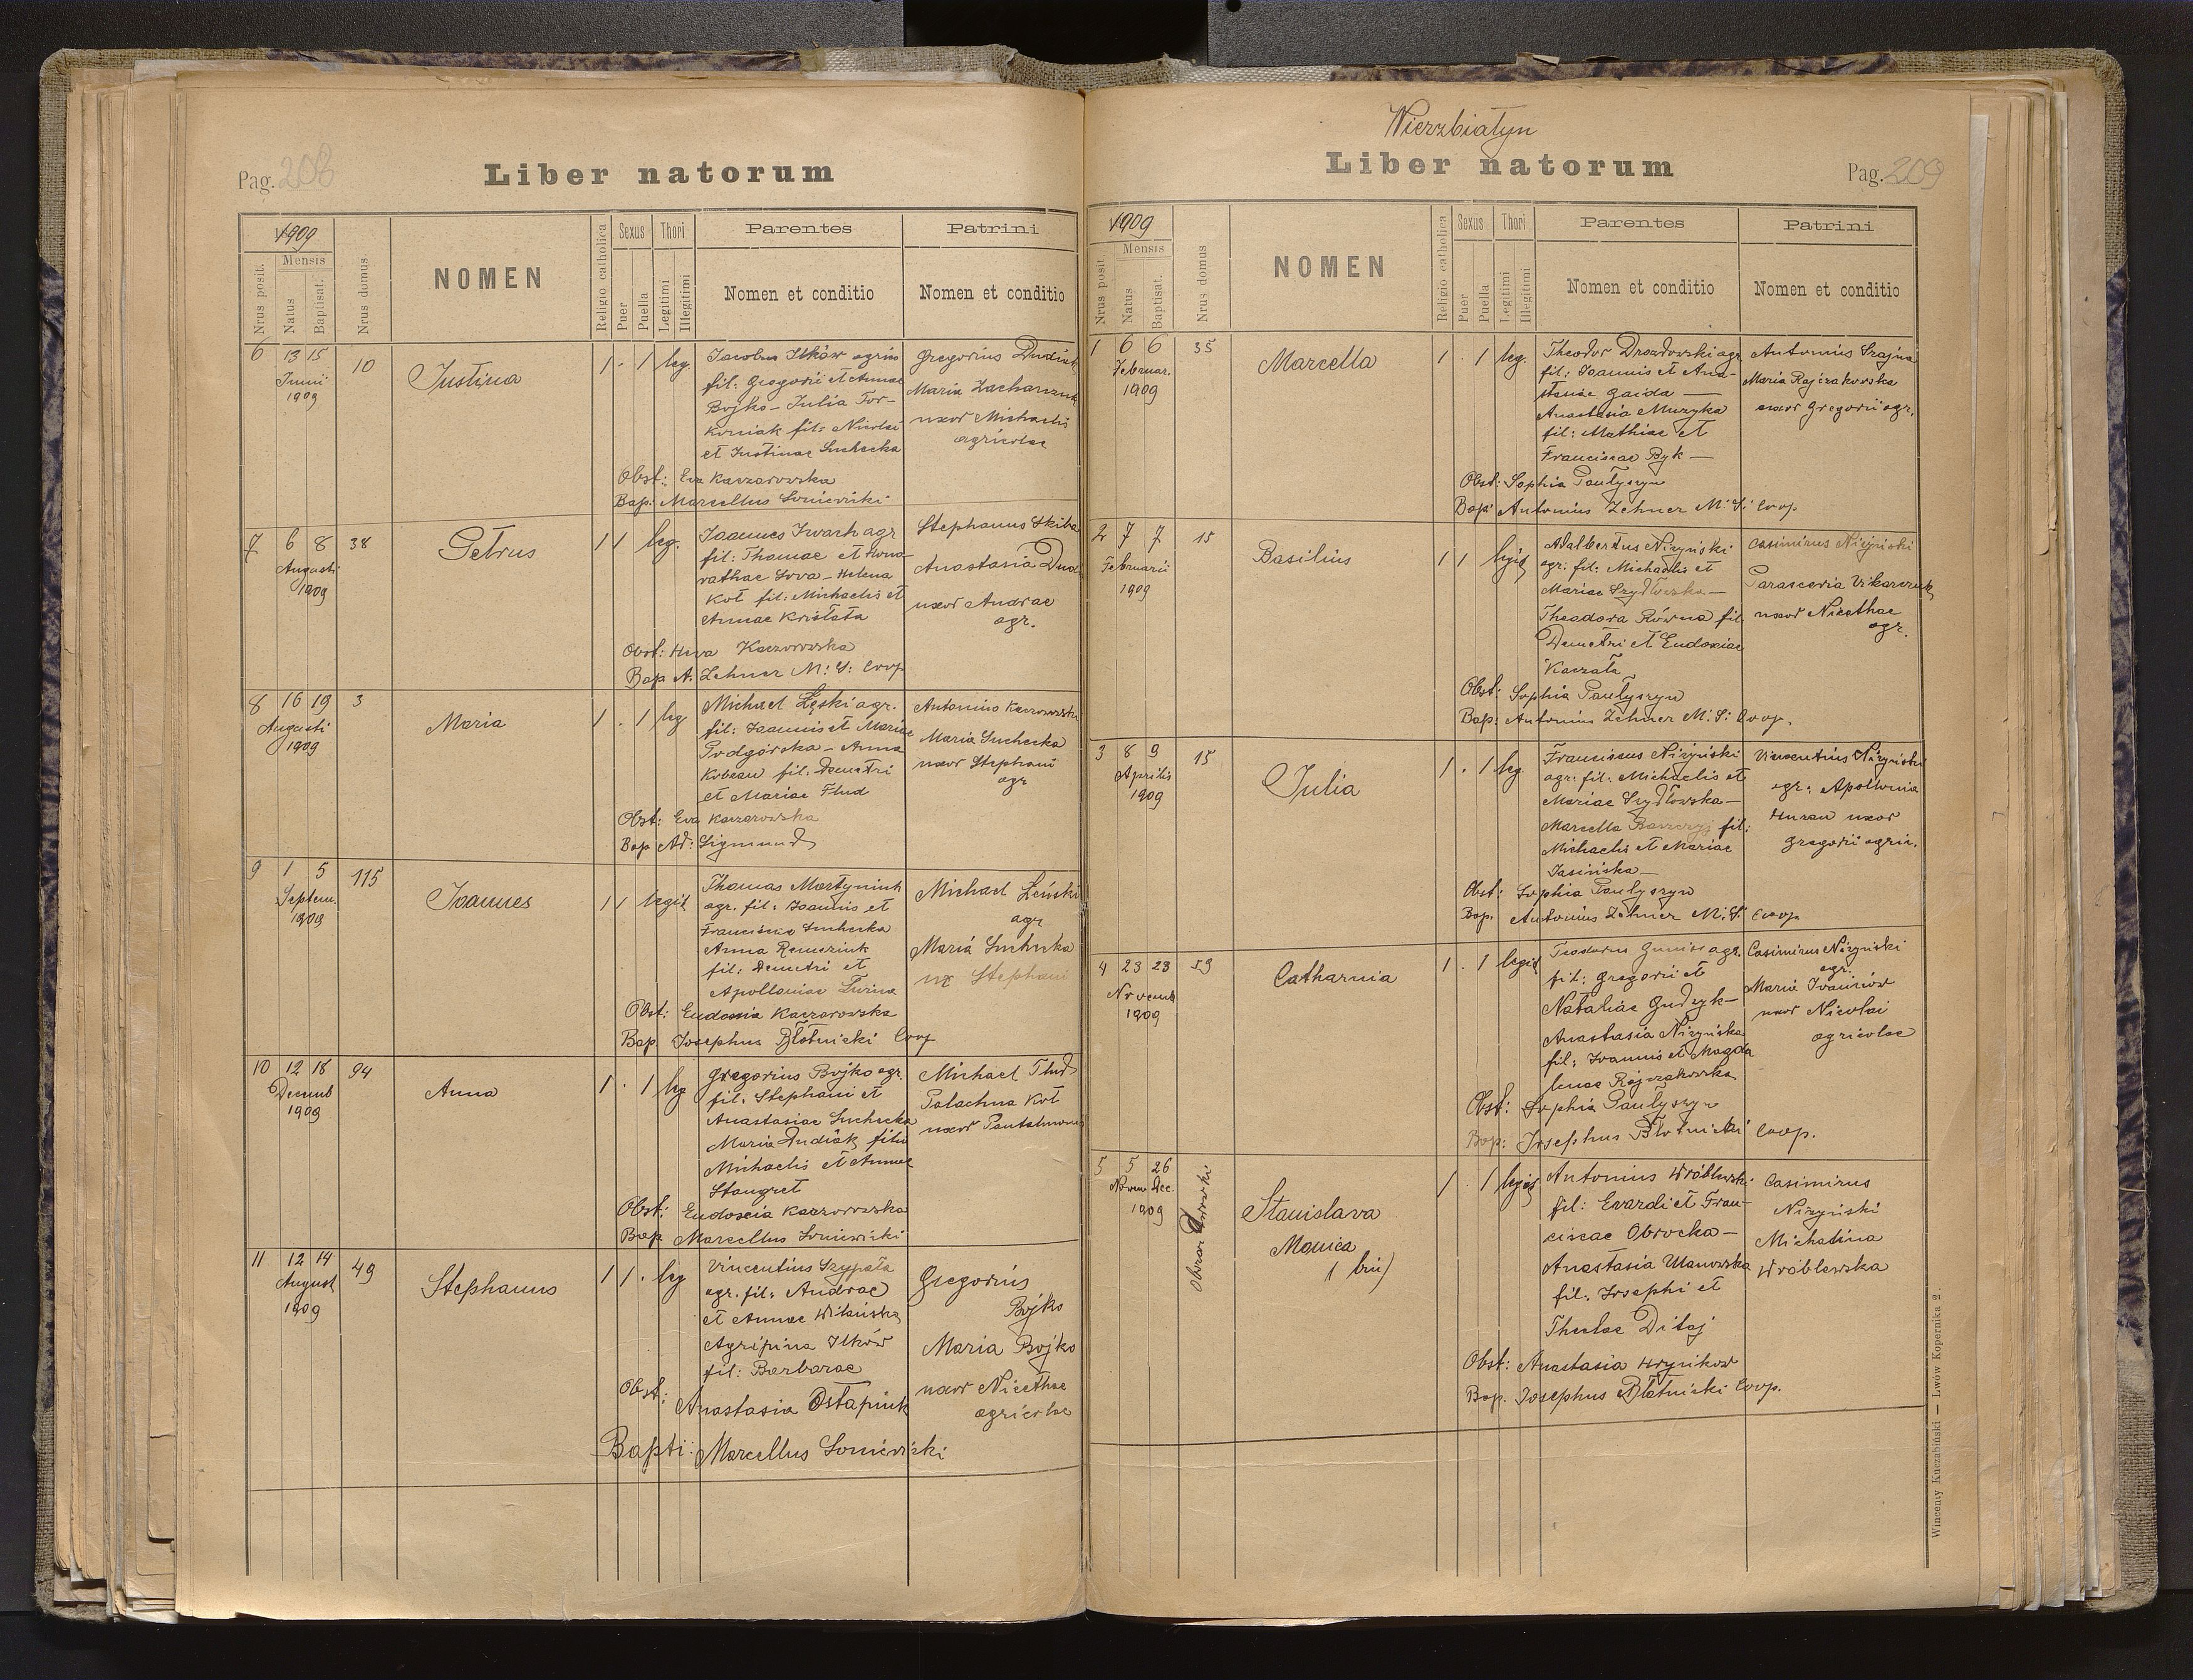 Pag. 208
Liber natorum
1909
Nrus posit.
Mensis
Natus
Baptisat.
Nrus domus
NOMEN
Religio catholica
Sexus
Puer
Puella
Thori
Legitimi
Illegitimi
Parentes
Nomen et conditio
Patrini
Nomen et conditio
6 13 15 10
Junii
1909
Justina
1 . 1 leg.
Jacobus Ilków agric
fil: Gregorii et Annae
Bojko – Julia Tor-
koniak fil: Nicolai
et Justinae Suchecka
Gregorius Dudiak
Maria Zacharczuk
uxor Michaelis
agricolae
Obst: Eva Kaczorowska
Bap: Marcellus Soniewicki
7 6 8 38
Augusti
1909
Petrus
1 1 leg.
Joannes Iwach agr
fil: Thomae et Horo-
rathae Sova – Helena
Kot fil: Michaelis et
Annae Kristata
Stephanus Skiba
Anastasia Dud
uxor Andrae
agr.
Obst: Hwa Kaczorowska
Bap A. Zehner M: S: Coop
8 16 19 3
Augusti
1909
Maria
1 . 1 leg
Michael Łęski agr.
fil: Joannis et Mariae
Podgórska – Anna
fil. Demetri
et Mariae Flud
Antonius Kaczorowski
Maria Suchecka
uxor Stephani
agr
Obst: Eva Kaczorowska
Bap Ad: Sigmund
9 1 5 115
Septem.
1909
Joannes
1 1 legit
Thomas Martyniuk
agr. fil: Joannis et
Suchecka
Anna
fil: Demetri et
Apolloniae
Michael Łeński
agr
Maria Suchecka
ux Stephani
Obst: Eudoxia Kaczorowska
Bap Josephus Błotnicki Coop
10 12 18 94
Decemb
1909
Anna
1 . 1 leg
Gregorius Bojko agr.
fil: Stephani et
Anastasiae Suchecka
Maria Dudiak filia
Michaelis et Annae
Stangret
Michael Flud
Palachna Kot
uxor
Obst: Eudoxia Kaczorowska
Bap Marcellus Soniewicki
11 12 14 49
August
1909
Stephanus
1 1 . leg
Vincentius Szypała
agr. fil: Andrae
et Annae
Agripina Ilków
fil: Barbarae
Gregorius
Bojko
Maria Bojko
uxor Nicethae
agricolae
Obst: Anastasia Ostapiuk
Bapti: Marcellus Soniewicki
Wierzbiatyn
Liber natorum
Pag. 209
1909
Nrus posit.
Mensis
Natus
Baptisat.
Nrus domus
NOMEN
Religio catholica
Sexus
Puer
Puella
Thori
Legitimi
Illegitimi
Parentes
Nomen et conditio
Patrini
Nomen et conditio
1 6 6 35
Februar.
1909
Marcella
1 . 1 leg.
Theodor Drozdowski agr
fil: Joannis et Ana-
stasiae Gaida –
Anastasia Muzyka
fil: Mathiae et
Franciscae Byk –
Antonius Szajna
Maria Rajczakowska
uxor Gregorii agr.
Obst: Sophia Pautyszyn
Bap: Antonius Zehner M: S: Coop
2 7 7 15
Februarii
1909
Basilius
1 1 legit
Adalbertus Niżyński
agr: fil: Michaelis et
Mariae Szydłowska –
Theodora Równa fil
Demetri et Eudoxiae
Kaczała
Casimirus Niżyński
Parascevia Vikarczuk
uxor Nicethae
agr.
Obst: Sophia Pautyszyn
Bap: Antonius Zehner M: S: Coop.
3 8 9 15
Aprilis
1909
Julia
1 . 1 leg.
Franciscus Niżyński
agr: fil: Michaelis et
Mariae Szydłowska –
Marcella fil:
Michaelis et Mariae
Jasińska –
Vincentius Niżyński
agr: Apollonia
uxor
Gregorii agric.
Obst: Sophia Pautyszyn
Bap. Antonius Zehner M: S: Coop
4 23 23 59
Novemb
1909
Catharnia
1 . 1 legit
Teodorus agr.
fil: Gregorii et
Nataliae Gudzyk –
Anastasia Niżyńska
fil: Joannis et Magda
lenae Rajczakowska
Casimirus Niżyński
agr.
Maria Iwaniców
uxor Nicolai
agricolae
Obst: Sophia Pautyszyn
Bap: Josephus Błotnicki Coop.
5 5 26
Novem Dec.
1909
Stanislava
Monica
(bin)
1 . 1 legit
Antonius Wróblewski
fil: Evardi et Fran-
ciscae Obrocka –
Anastasia Ulanowska
fil: Josephi et
Theclae Ditaj
Casimirus
Niżyński
Michalina
Wróblewska
Obst: Anastasia Hrynikow
Bap. Josephus Błotnicki Coop.
Wincenty Kuczabiński — Lwów Kopernika 2.